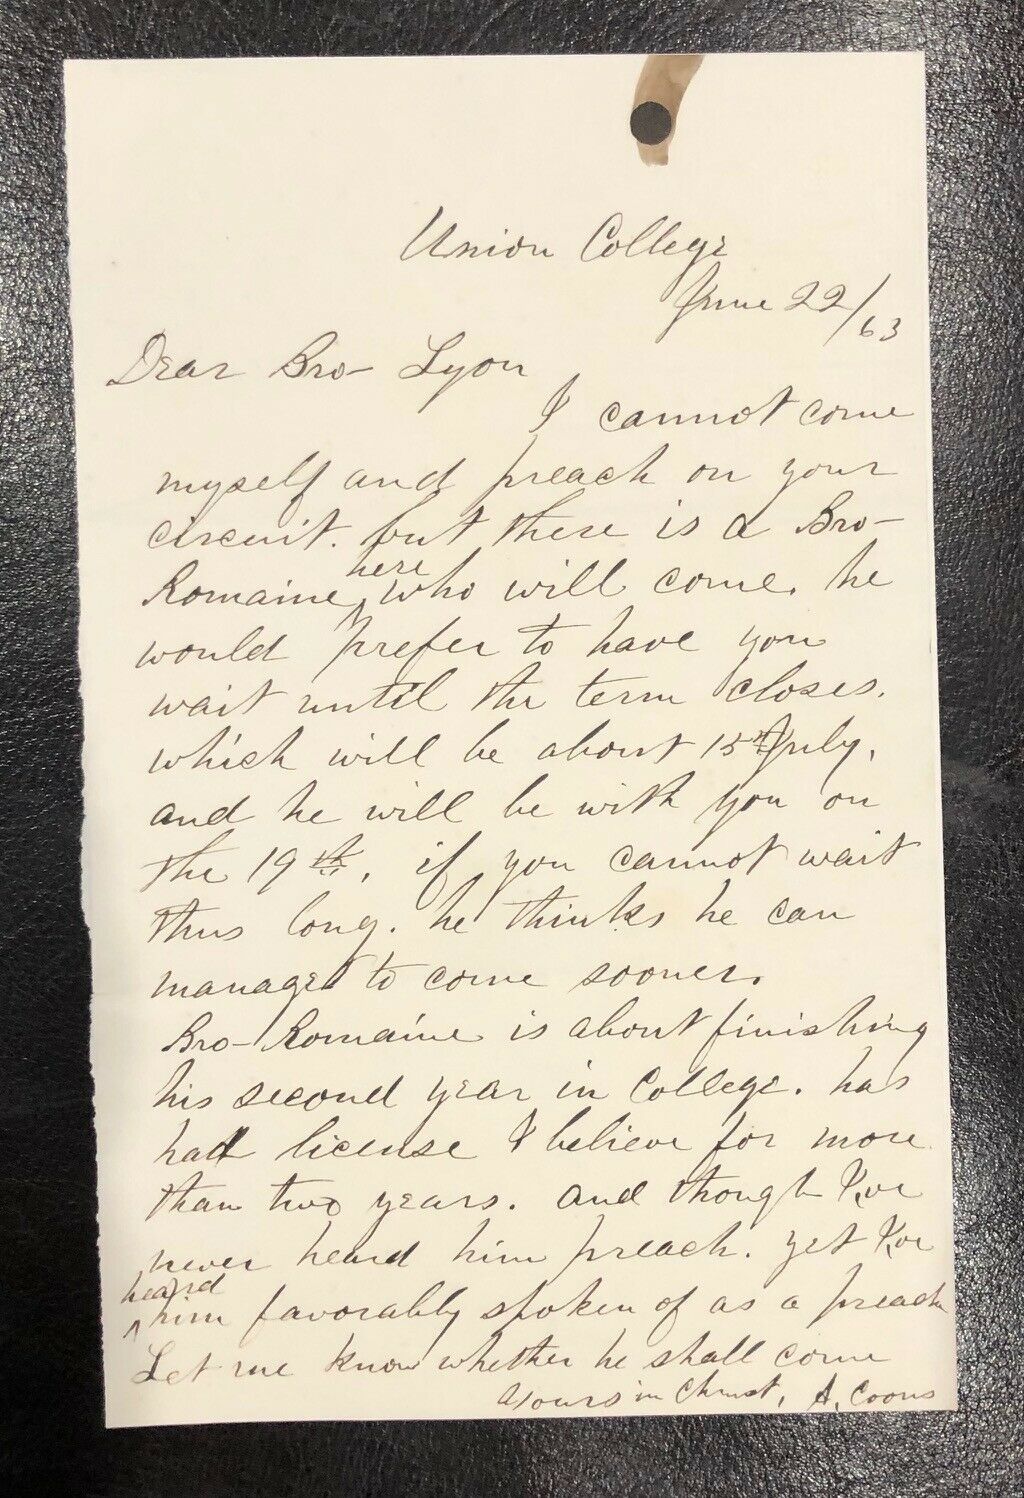 Union College
June 22/63
Dear Bro- Lyon
I cannot come
myself and preach on your
circuit. but there is a Bro-
Romaine here who will come. he
would prefer to have you
wait until the term closes.
which will be about 15th July,
and he will be with you on
the 19th, if you cannot wait
thus long. he thinks he can
manage to come sooner.
Bro- Romaine is about finishing
his second year in College. has
had license I believe for more
than two years. and though I've
never heard him preach. yet I've
heard him favorably spoken of as a preach
Let me know whether he shall come
Yours in Christ, A. Coons